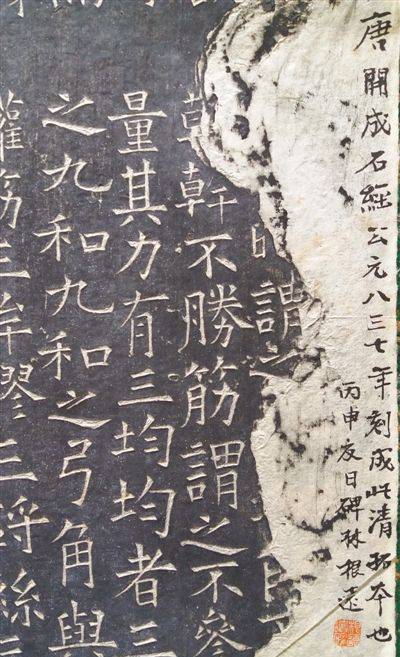 唐開成石經公元八三七年刻成此清拓本也
丙申夏日碑林根遠
謂之
幹幹不勝筋謂之不參
量其力有三均均者三
之九和九和之弓角與
權筋三侔膠三鋝絲三